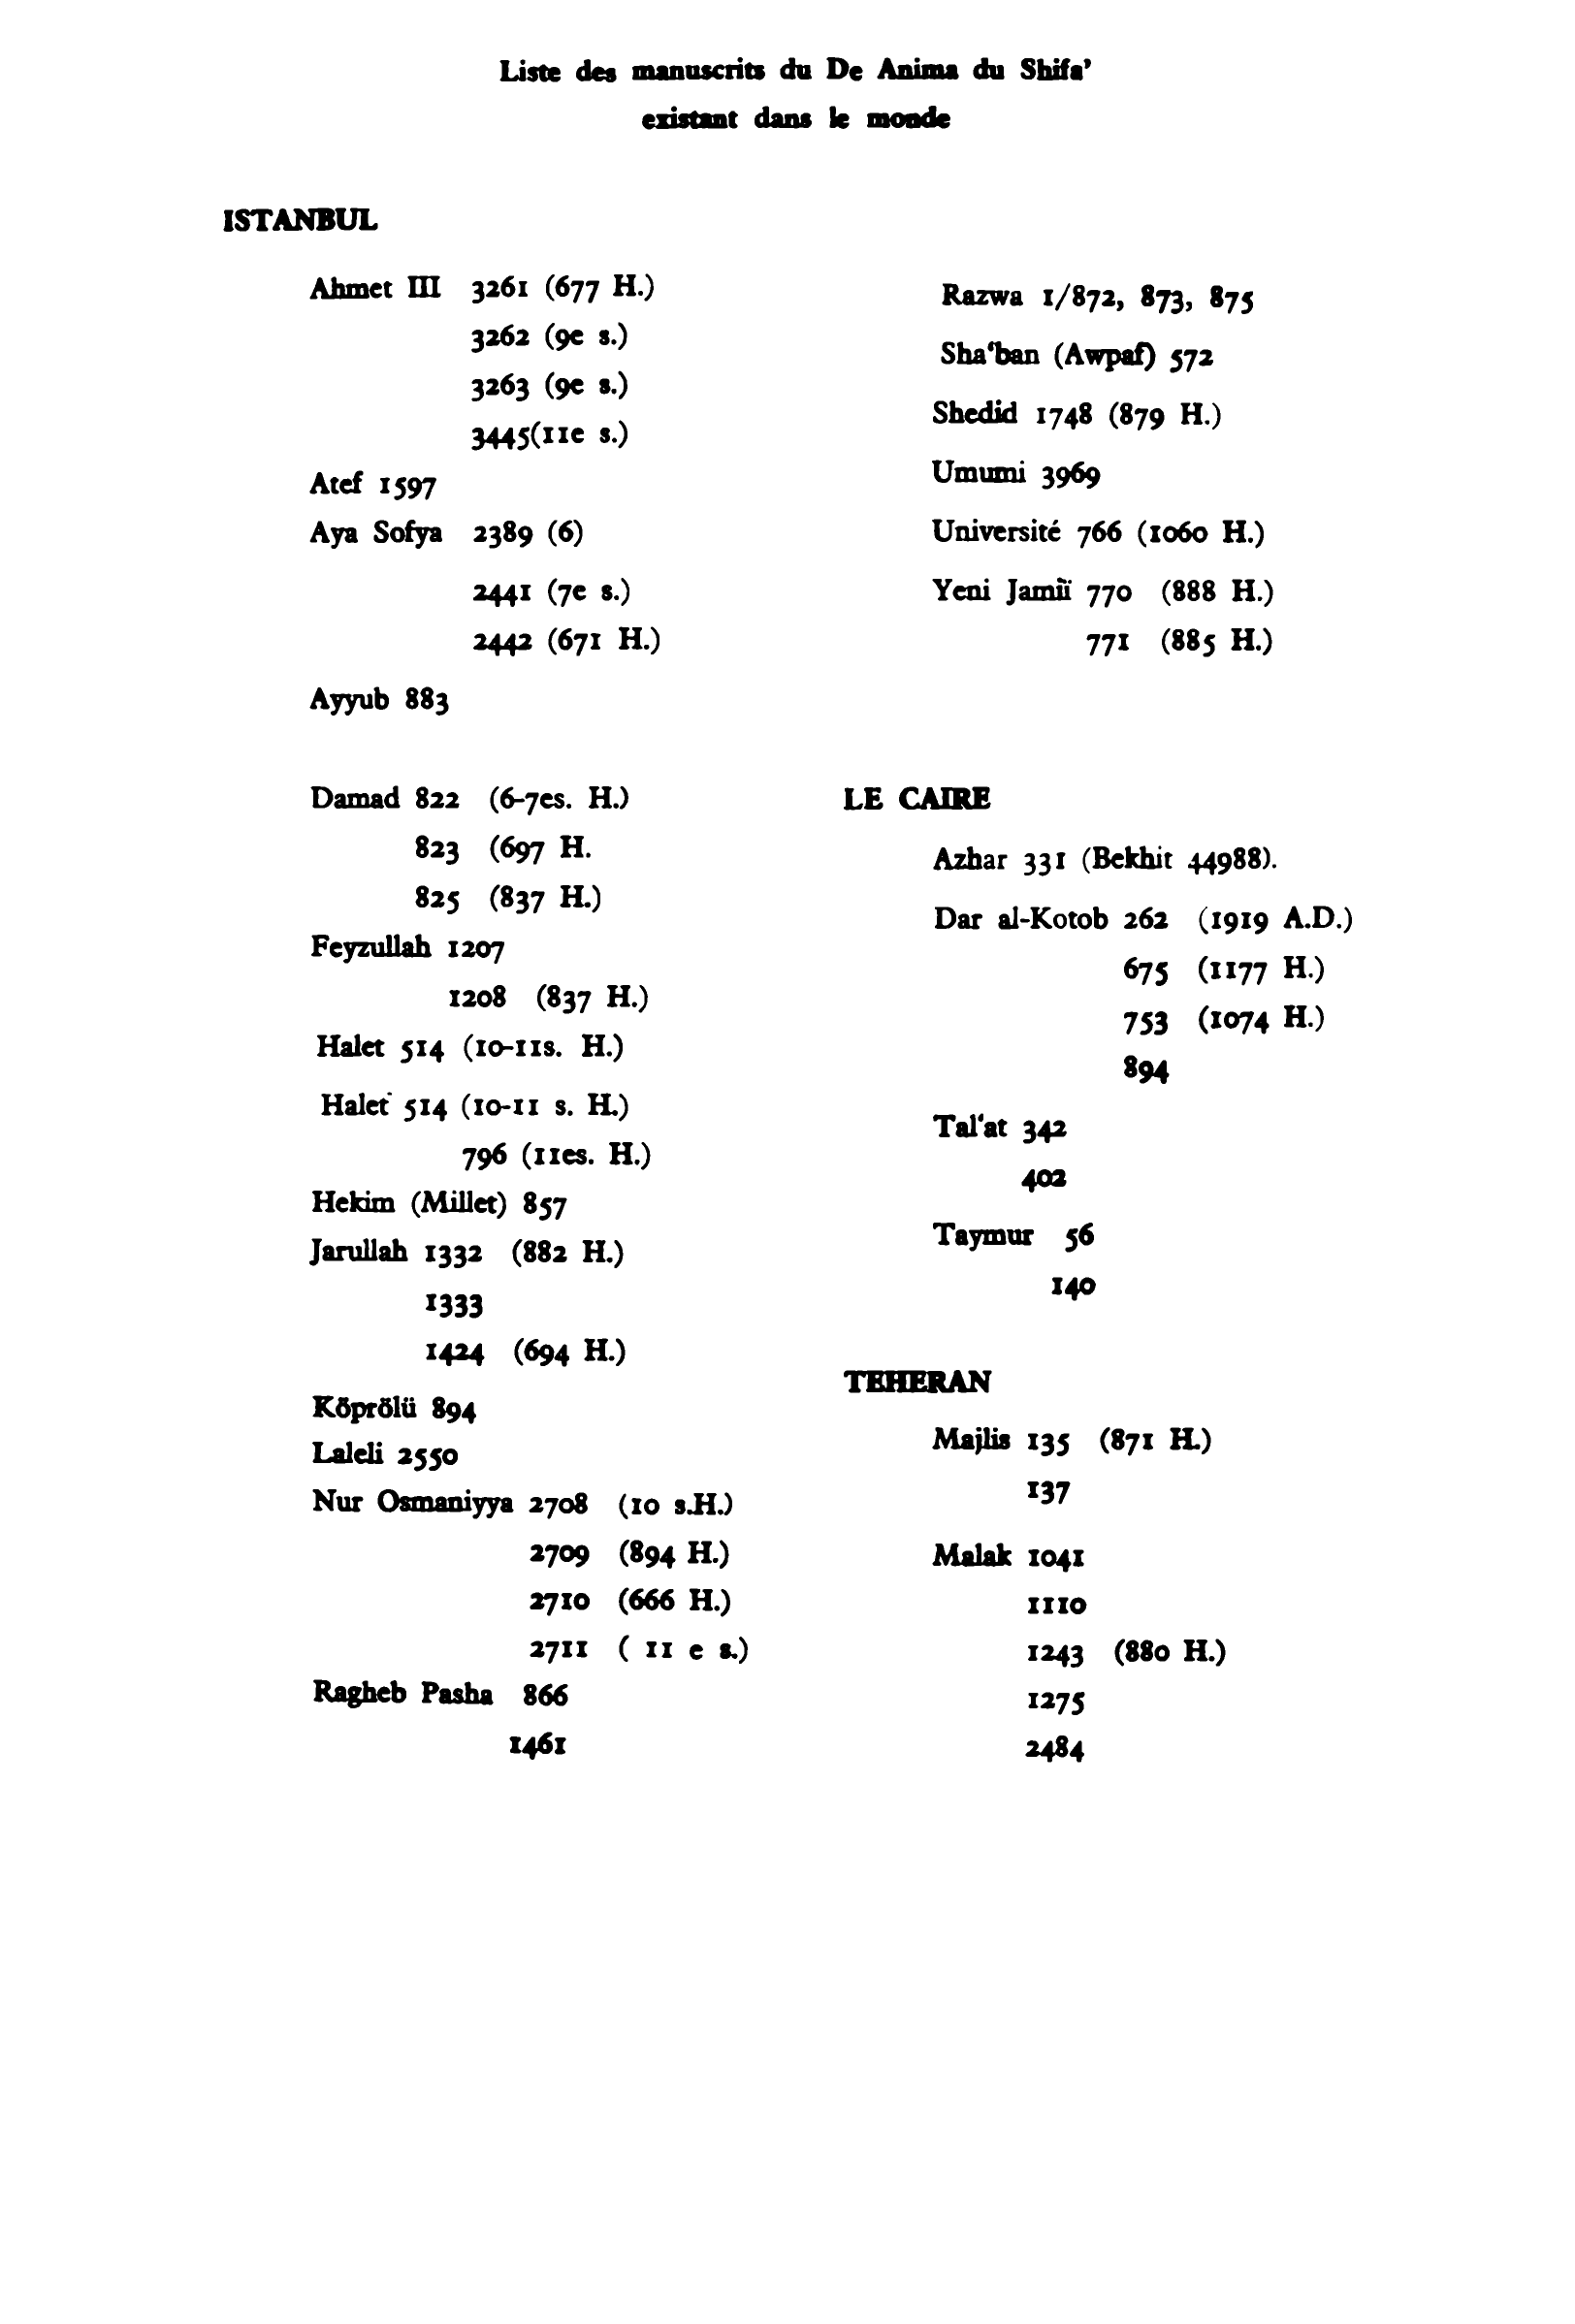 Liste des manuscrits du De Anima du Shifa’
existant dans le monde
ISTANBUL
Ahmet III 3261 (677 H.)
3262 (9e s.)
3263 (9e s.)
3445(11e s.)
Atef 1597
Aya Sofya 2389 (6)
2441 (7e s.)
2442 (671 H.)
Ayyub 883
Damad 822 (6-7es. H.)
823 (697 H.
825 (837 H.)
Feyzullah 1207
1208 (837 H.)
Halet 514 (10-11s. H.)
Halet 514 (10-11 s. H.)
796 (11es. H.)
Hekim (Millet) 857
Jarullah 1332 (882 H.)
1333
1424 (694 H.)
Köprölü 894
Laleli 2550
Nur Osmaniyya 2708 (10 s.H.)
2709 (894 H.)
2710 (666 H.)
2711 ( 11 e s.)
Ragheb Pasha 866
1461
Razwa 1/872, 873, 875
Sha‘ban (Awpaf) 572
Shedid 1748 (879 H.)
Umumi 3969
Université 766 (1060 H.)
Yeni Jamîï 770 (888 H.)
771 (885 H.)
LE CAIRE
Azhar 331 (Bekhit 44988).
Dar al-Kotob 262 (1919 A.D.)
675 (1177 H.)
753 (1074 H.)
894
Tal‘at 342
402
Taymur 56
140
TEHERAN
Majlis 135 (871 H.)
137
Malak 1041
1110
1243 (880 H.)
1275
2484